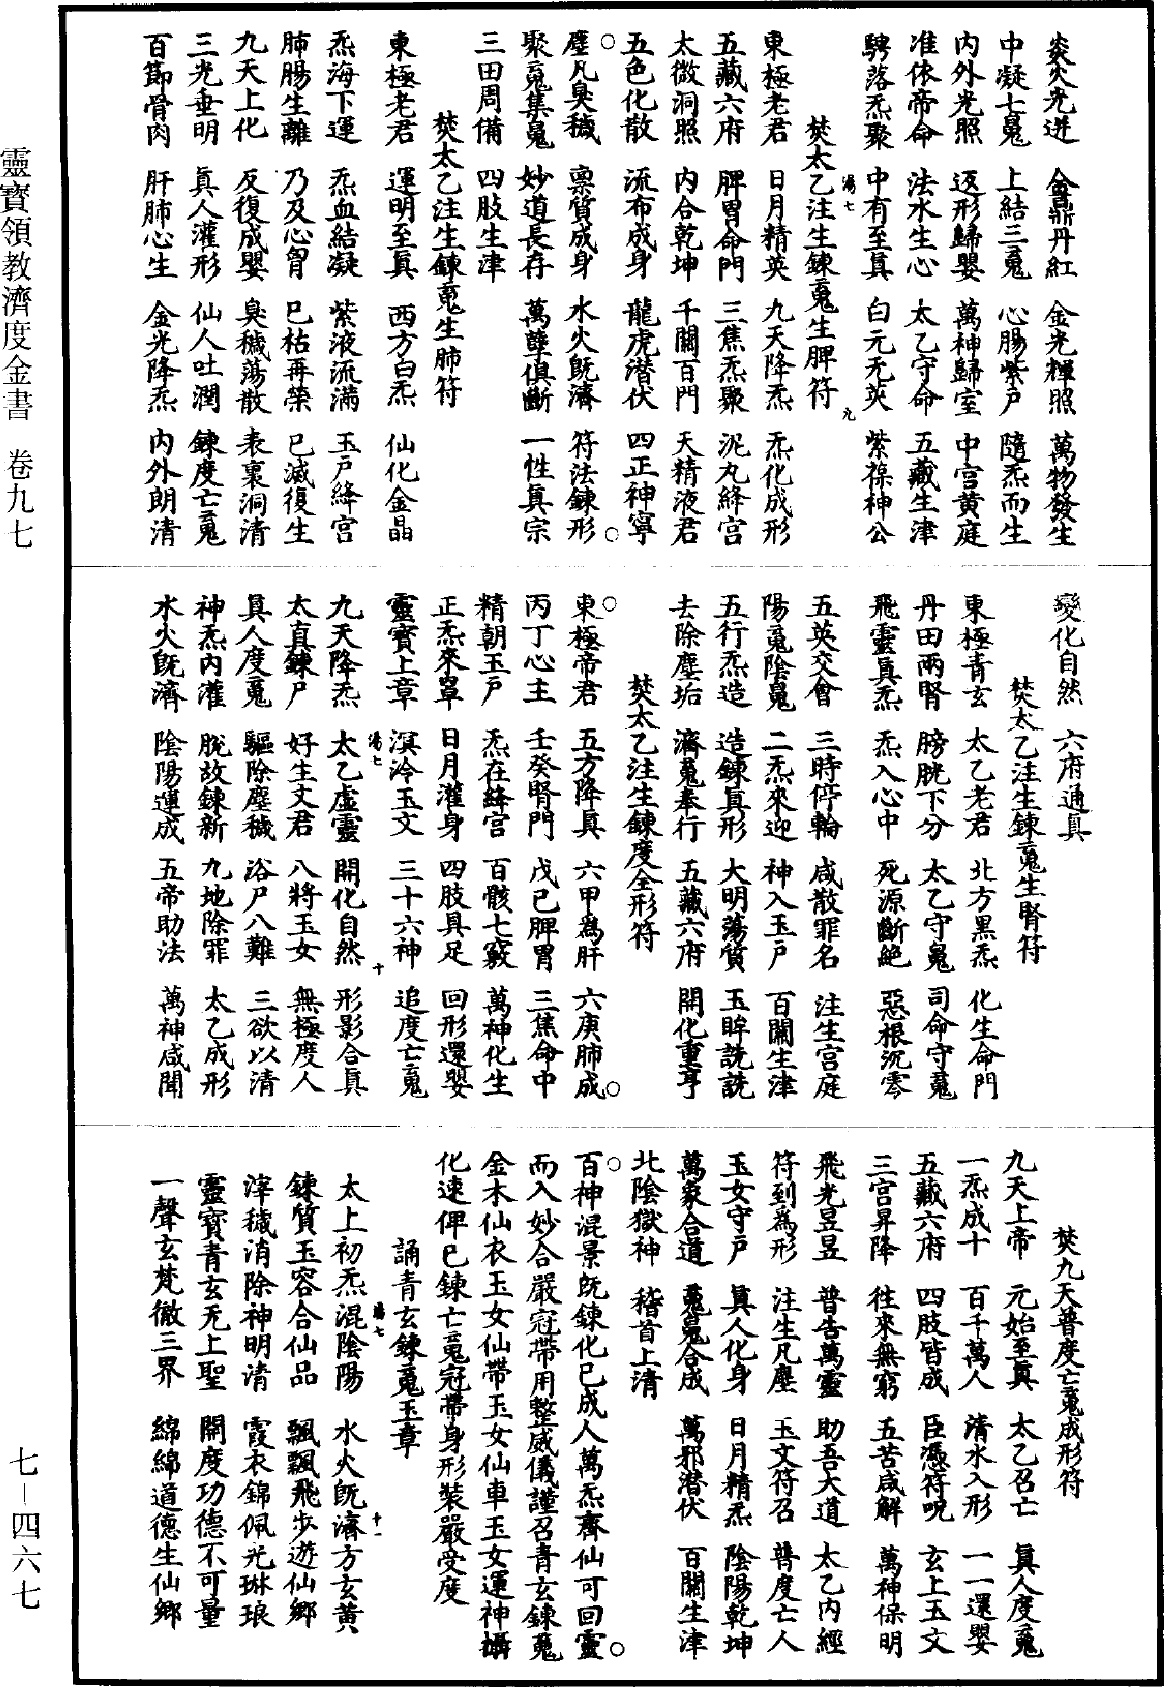 炎火光迸　金鼎丹紅　金光輝照　萬物發生
中凝七魄　上結三䰟　心腸紫戶　隨炁而生
内外光照　返形歸嬰　萬神歸室　中宫黄庭
准依帝命　法水生心　太乙守命　五藏生津
騁落炁聚　中有至真　白元无英　紫葆神公
焚太乙注生鍊䰟生脾符
湯七　九
東極老君　日月精英　九天降炁　炁化成形
五藏六府　脾胃命門　三焦炁聚　泥丸絳宫
太微洞照　内合乾坤　千關百門　天精液君
五色化散　流布成身　龍虎潜伏　四正神寧
塵凡臭穢　禀質成身　水火既濟　符法鍊形
聚䰟集魄　妙道長存　萬孽俱斷　一性真宗
三田周備　四肢生津
焚太乙注生鍊䰟生肺符
東極老君　運明至真　西方白炁　仙化金晶
炁海下運　炁血結凝　紫液流滿　玉戶絳宫
肺腸生離　乃及心胷　已枯再榮　已滅復生
九天上化　反復成嬰　臭穢蕩散　表裏洞清
三光垂明　真人灌形　仙人吐潤　鍊度亡䰟
百節骨肉　肝肺心生　金光降炁　内外朗清
變化自然　六府通真
焚太乙注生鍊䰟生腎符
東極青玄　太乙老君　北方黑炁　化生命門
丹田兩腎　膀胱下分　太乙守魄　司命守䰟
飛靈真炁　炁入心中　死源斷絕　惡根沉零
五英交會　三時停輪　咸散罪名　注生宫庭
陽䰟陰魄　二炁來迎　神入玉戶　百關生津
五行炁造　造鍊真形　大明蕩質　玉眸詵詵
去除塵垢　濟䰟奉行　五藏六府　開化重亨
焚太乙注生鍊度全形符
東極帝君　五方降真　六甲為肝　六庚肺成
丙丁心主　壬癸腎門　戊己脾胃　三焦命中
精朝玉戶　炁在絳宫　百骸七竅　萬神化生
正炁來罩　日月灌身　四肢具足　回形還嬰
靈寶上章　溟泠玉文　三十六神　追度亡䰟
湯七　十
九天降炁　太乙虚靈　開化自然　形影合真
太真鍊尸　好生文君　八將玉女　無極度人
真人度䰟　驅除塵穢　浴尸八難　三欲以清
神炁内灌　脫故鍊新　九地除罪　太乙成形
水火既濟　陰陽運成　五帝助法　萬神咸聞
焚九天普度亡䰟成形符
九天上帝　元始至真　太乙召亡　真人度䰟
一炁成十　百千萬人　清水入形　一一還嬰
五藏六府　四肢皆成　臣憑符呪　玄上玉文
三宫昇降　往來無窮　五苦咸解　萬神保明
飛光昱昱　普告萬靈　助吾大道　太乙内經
符到為形　注生凡塵　玉文符召　普度亡人
玉女守戶　真人化身　日月精炁　陰陽乾坤
萬象合道　䰟魄合成　萬邪潜伏　百關生津
北陰獄神　稽首上清
百神混景既鍊化已成人萬炁齋仙可回靈
而入妙合嚴冠帶用整威儀謹召青玄鍊䰟
金木仙衣玉女仙帶玉女仙車玉女運神攝
化速俾已鍊亡䰟冠帶身形裝嚴受度
誦青玄鍊䰟玉章
湯七　十一
太上初炁混陰陽　水火既濟方玄黄
鍊質玉容合仙品　飄飄飛步遊仙鄉
滓穢消除神明清　霞衣錦佩光琳琅
靈寶青玄无上聖　開度功德不可量
一聲玄梵徹三界　綿綿道德生仙鄉
靈寶領教濟度金書　卷九七
七－四六七